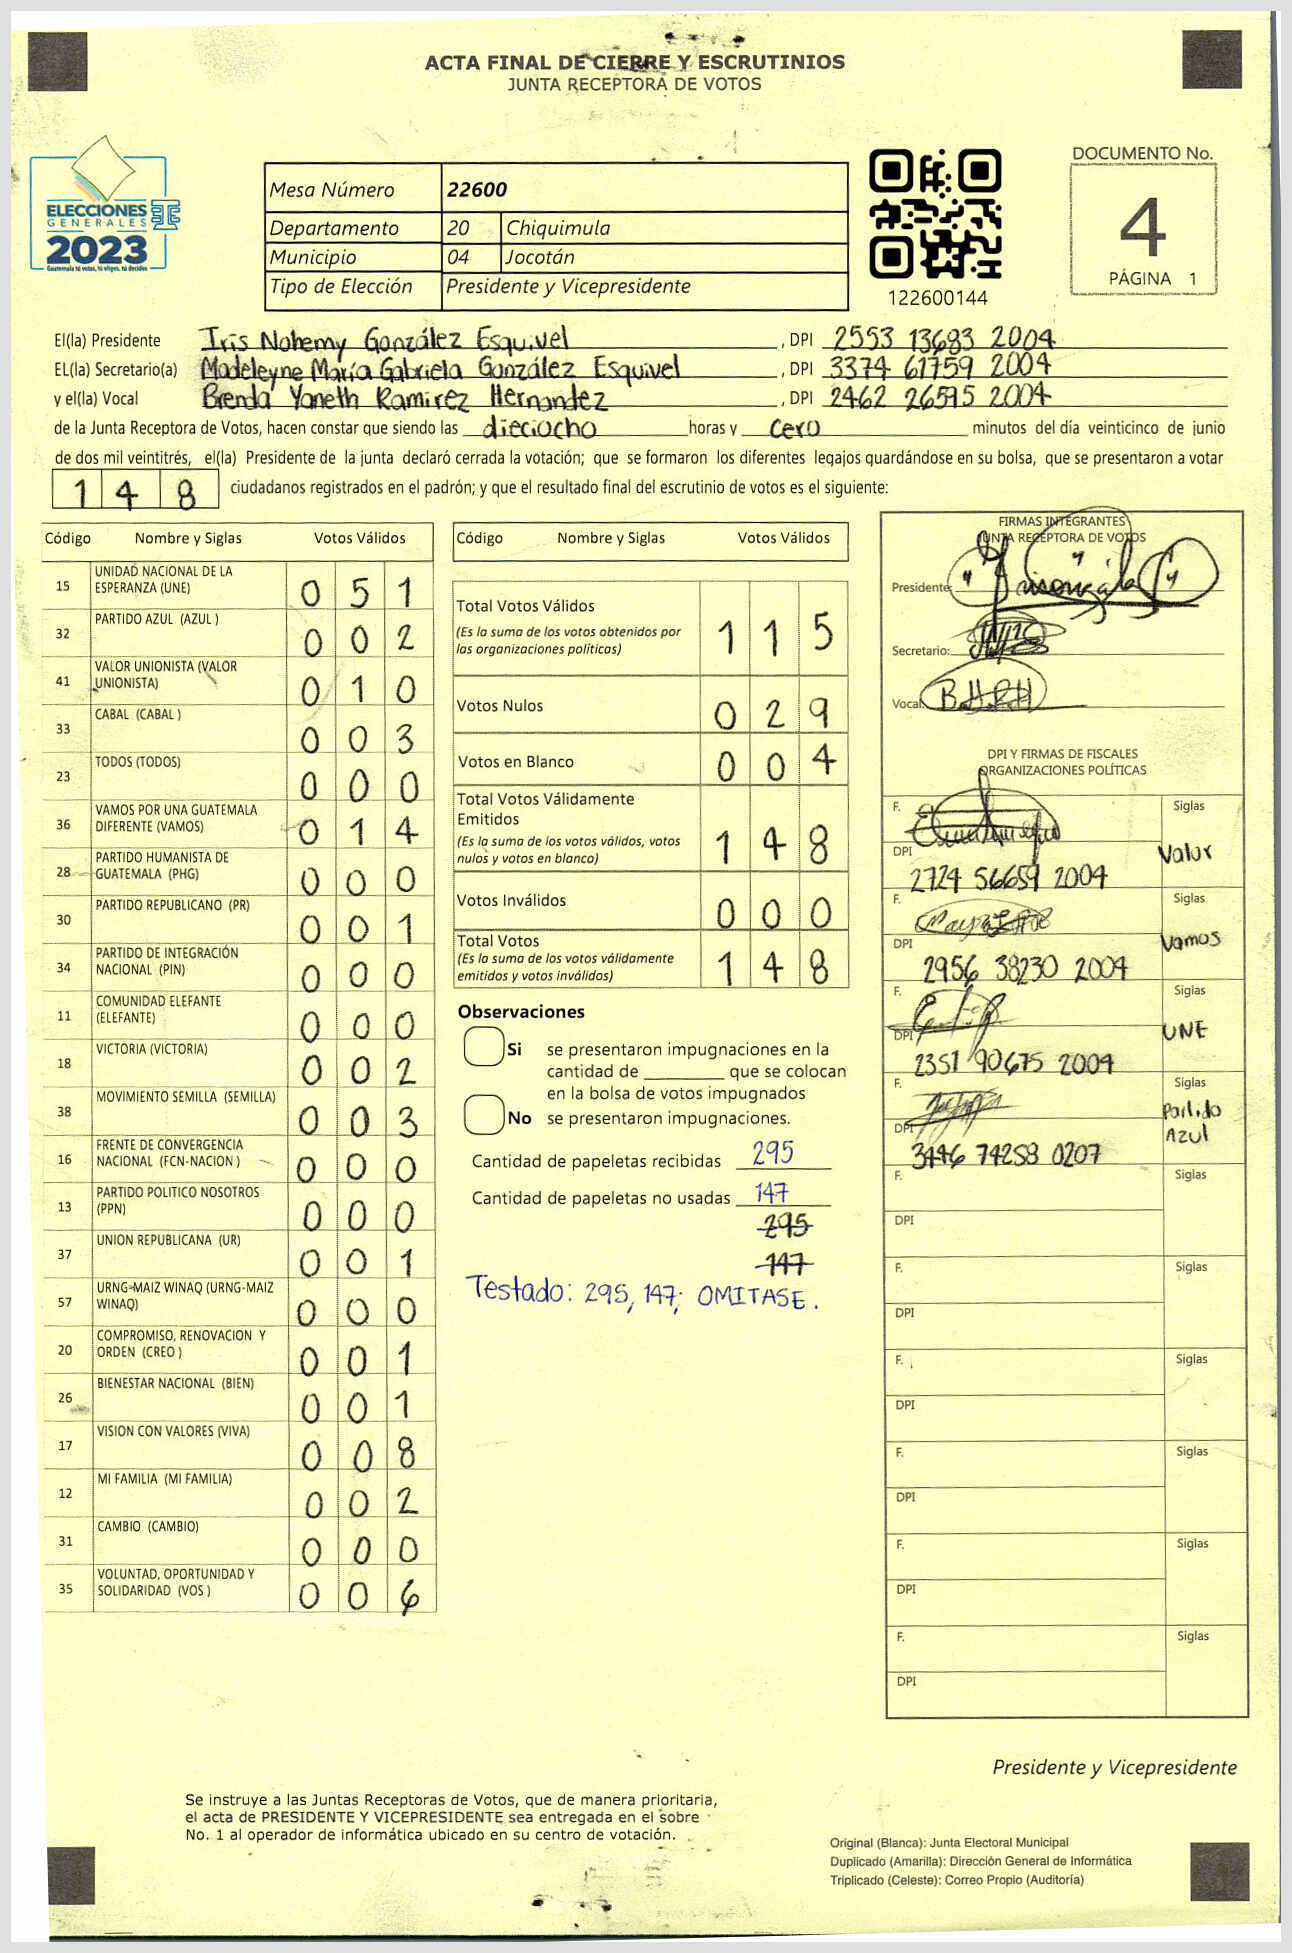 ACTA FINAL DE CIERRE Y ESCRUTINIOS
JUNTA RECEPTORA DE VOTOS
ELECCIONES
GENERALES
2023
Guatemala tú votas, tú eliges, tú decides
Mesa Número 22600
Departamento 20 Chiquimula
Municipio 04 Jocotán
Tipo de Elección Presidente y Vicepresidente
122600144
DOCUMENTO No.
4
PÁGINA 1
El(la) Presidente Iris Nohemy González Esquivel , DPI 2553 13683 2004
EL(la) Secretario(a) Madeleyne María Gabriela González Esquivel , DPI 3374 61759 2004
y el(la) Vocal Brenda Yaneth Ramirez Hernandez , DPI 2462 26595 2004
de la Junta Receptora de Votos, hacen constar que siendo las dieciocho horas y cero minutos del día veinticinco de junio
de dos mil veintitrés, el(la) Presidente de la junta declaró cerrada la votación; que se formaron los diferentes legajos guardándose en su bolsa, que se presentaron a votar
148 ciudadanos registrados en el padrón; y que el resultado final del escrutinio de votos es el siguiente:
Código Nombre y Siglas Votos Válidos
15 UNIDAD NACIONAL DE LA
ESPERANZA (UNE) 0 5 1
32 PARTIDO AZUL (AZUL ) 0 0 2
41 VALOR UNIONISTA (VALOR
UNIONISTA) 0 1 0
33 CABAL (CABAL ) 0 0 3
23 TODOS (TODOS) 0 0 0
36 VAMOS POR UNA GUATEMALA
DIFERENTE (VAMOS) 0 1 4
28 PARTIDO HUMANISTA DE
GUATEMALA (PHG) 0 0 0
30 PARTIDO REPUBLICANO (PR) 0 0 1
34 PARTIDO DE INTEGRACIÓN
NACIONAL (PIN) 0 0 0
11 COMUNIDAD ELEFANTE
(ELEFANTE) 0 0 0
18 VICTORIA (VICTORIA) 0 0 2
38 MOVIMIENTO SEMILLA (SEMILLA) 0 0 3
16 FRENTE DE CONVERGENCIA
NACIONAL (FCN-NACION ) 0 0 0
13 PARTIDO POLITICO NOSOTROS
(PPN) 0 0 0
37 UNION REPUBLICANA (UR) 0 0 1
57 URNG-MAIZ WINAQ (URNG-MAIZ
WINAQ) 0 0 0
20 COMPROMISO, RENOVACION Y
ORDEN (CREO ) 0 0 1
26 BIENESTAR NACIONAL (BIEN) 0 0 1
17 VISION CON VALORES (VIVA) 0 0 8
12 MI FAMILIA (MI FAMILIA) 0 0 2
31 CAMBIO (CAMBIO) 0 0 0
35 VOLUNTAD, OPORTUNIDAD Y
SOLIDARIDAD (VOS ) 0 0 6
Código Nombre y Siglas Votos Válidos
Total Votos Válidos 1 1 5
(Es la suma de los votos obtenidos por
las organizaciones políticas)
Votos Nulos 0 2 9
Votos en Blanco 0 0 4
Total Votos Válidamente
Emitidos
(Es la suma de los votos válidos, votos
nulos y votos en blanco) 1 4 8
Votos Inválidos 0 0 0
Total Votos
(Es la suma de los votos válidamente
emitidos y votos inválidos) 1 4 8
Observaciones
Si se presentaron impugnaciones en la
cantidad de ________ que se colocan
en la bolsa de votos impugnados
No se presentaron impugnaciones.
Cantidad de papeletas recibidas 295
Cantidad de papeletas no usadas 147
295
147
Testado: 295, 147; OMITASE.
FIRMAS INTEGRANTES
JUNTA RECEPTORA DE VOTOS
Presidente:
Secretario:
Vocal: B.H.R.H
DPI Y FIRMAS DE FISCALES
ORGANIZACIONES POLÍTICAS
F. Siglas
Valor
DPI
2724 56659 2004
F. Siglas
Vamos
DPI
2956 38230 2004
F. Siglas
UNE
DPI
2351 90675 2004
F. Siglas
Partido
Azul
DPI
3446 74258 0207
F. Siglas
DPI
F. Siglas
DPI
F. Siglas
DPI
F. Siglas
DPI
F. Siglas
DPI
F. Siglas
DPI
Presidente y Vicepresidente
Se instruye a las Juntas Receptoras de Votos, que de manera prioritaria,
el acta de PRESIDENTE Y VICEPRESIDENTE sea entregada en el sobre
No. 1 al operador de informática ubicado en su centro de votación.
Original (Blanca): Junta Electoral Municipal
Duplicado (Amarilla): Dirección General de Informática
Triplicado (Celeste): Correo Propio (Auditoría)